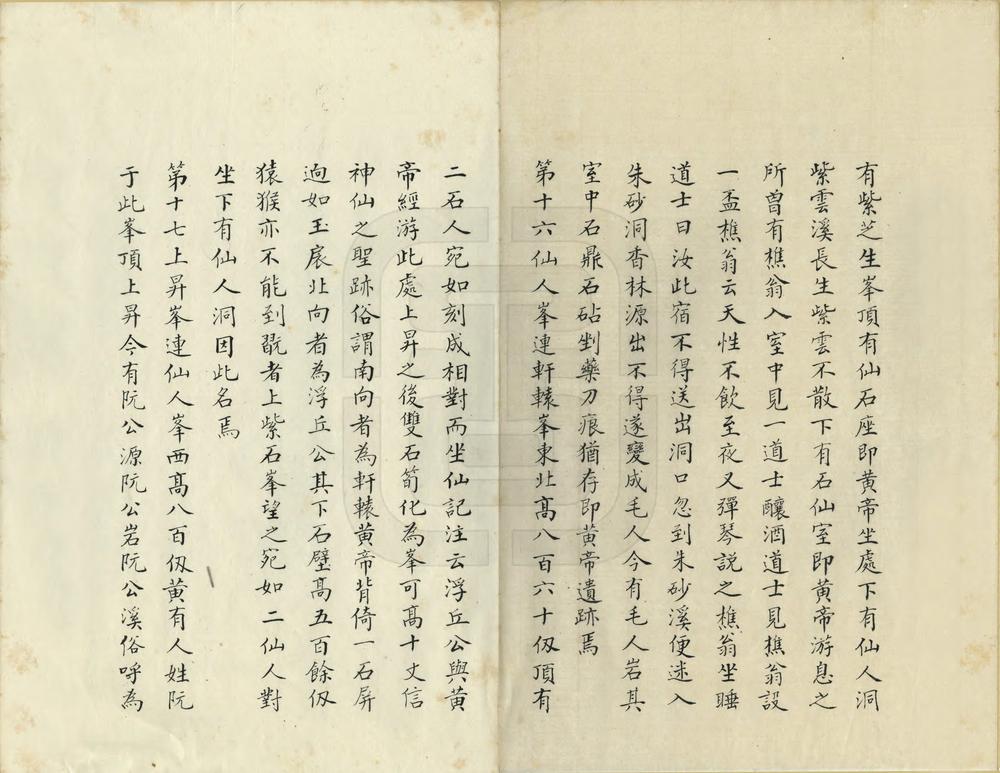 有紫芝生峯頂有仙石座即黄帝坐處下有仙人洞
紫雲溪長生紫雲不散下有石仙室即黄帝游息之
所曽有樵翁入室中見一道士釀酒道士見樵翁設
一盃樵翁云天性不飲至夜又彈琴説之樵翁坐睡
道士曰汝此宿不得送出洞口忽到朱砂溪便迷入
朱砂洞香林源出不得遂變成毛人今有毛人岩其
室中石鼎石砧剉藥刀痕猶存即黄帝遺跡焉
第十六仙人峯連軒轅峯東北髙八百六十仭頂有
二石人宛如刻成相對而坐仙記注云浮丘公與黄
帝經游此處上昇之後雙石筍化為峯可髙十丈信
神仙之聖跡俗謂南向者為軒轅黄帝背倚一石屏
逈如玉扆北向者為浮丘公其下石壁髙五百餘仭
猿猴亦不能到翫者上紫石峯望之宛如二仙人對
坐下有仙人洞因此名焉
第十七上昇峯連仙人峯西髙八百仭黄有人姓阮
于此峯頂上昇今有阮公源阮公岩阮公溪俗呼為